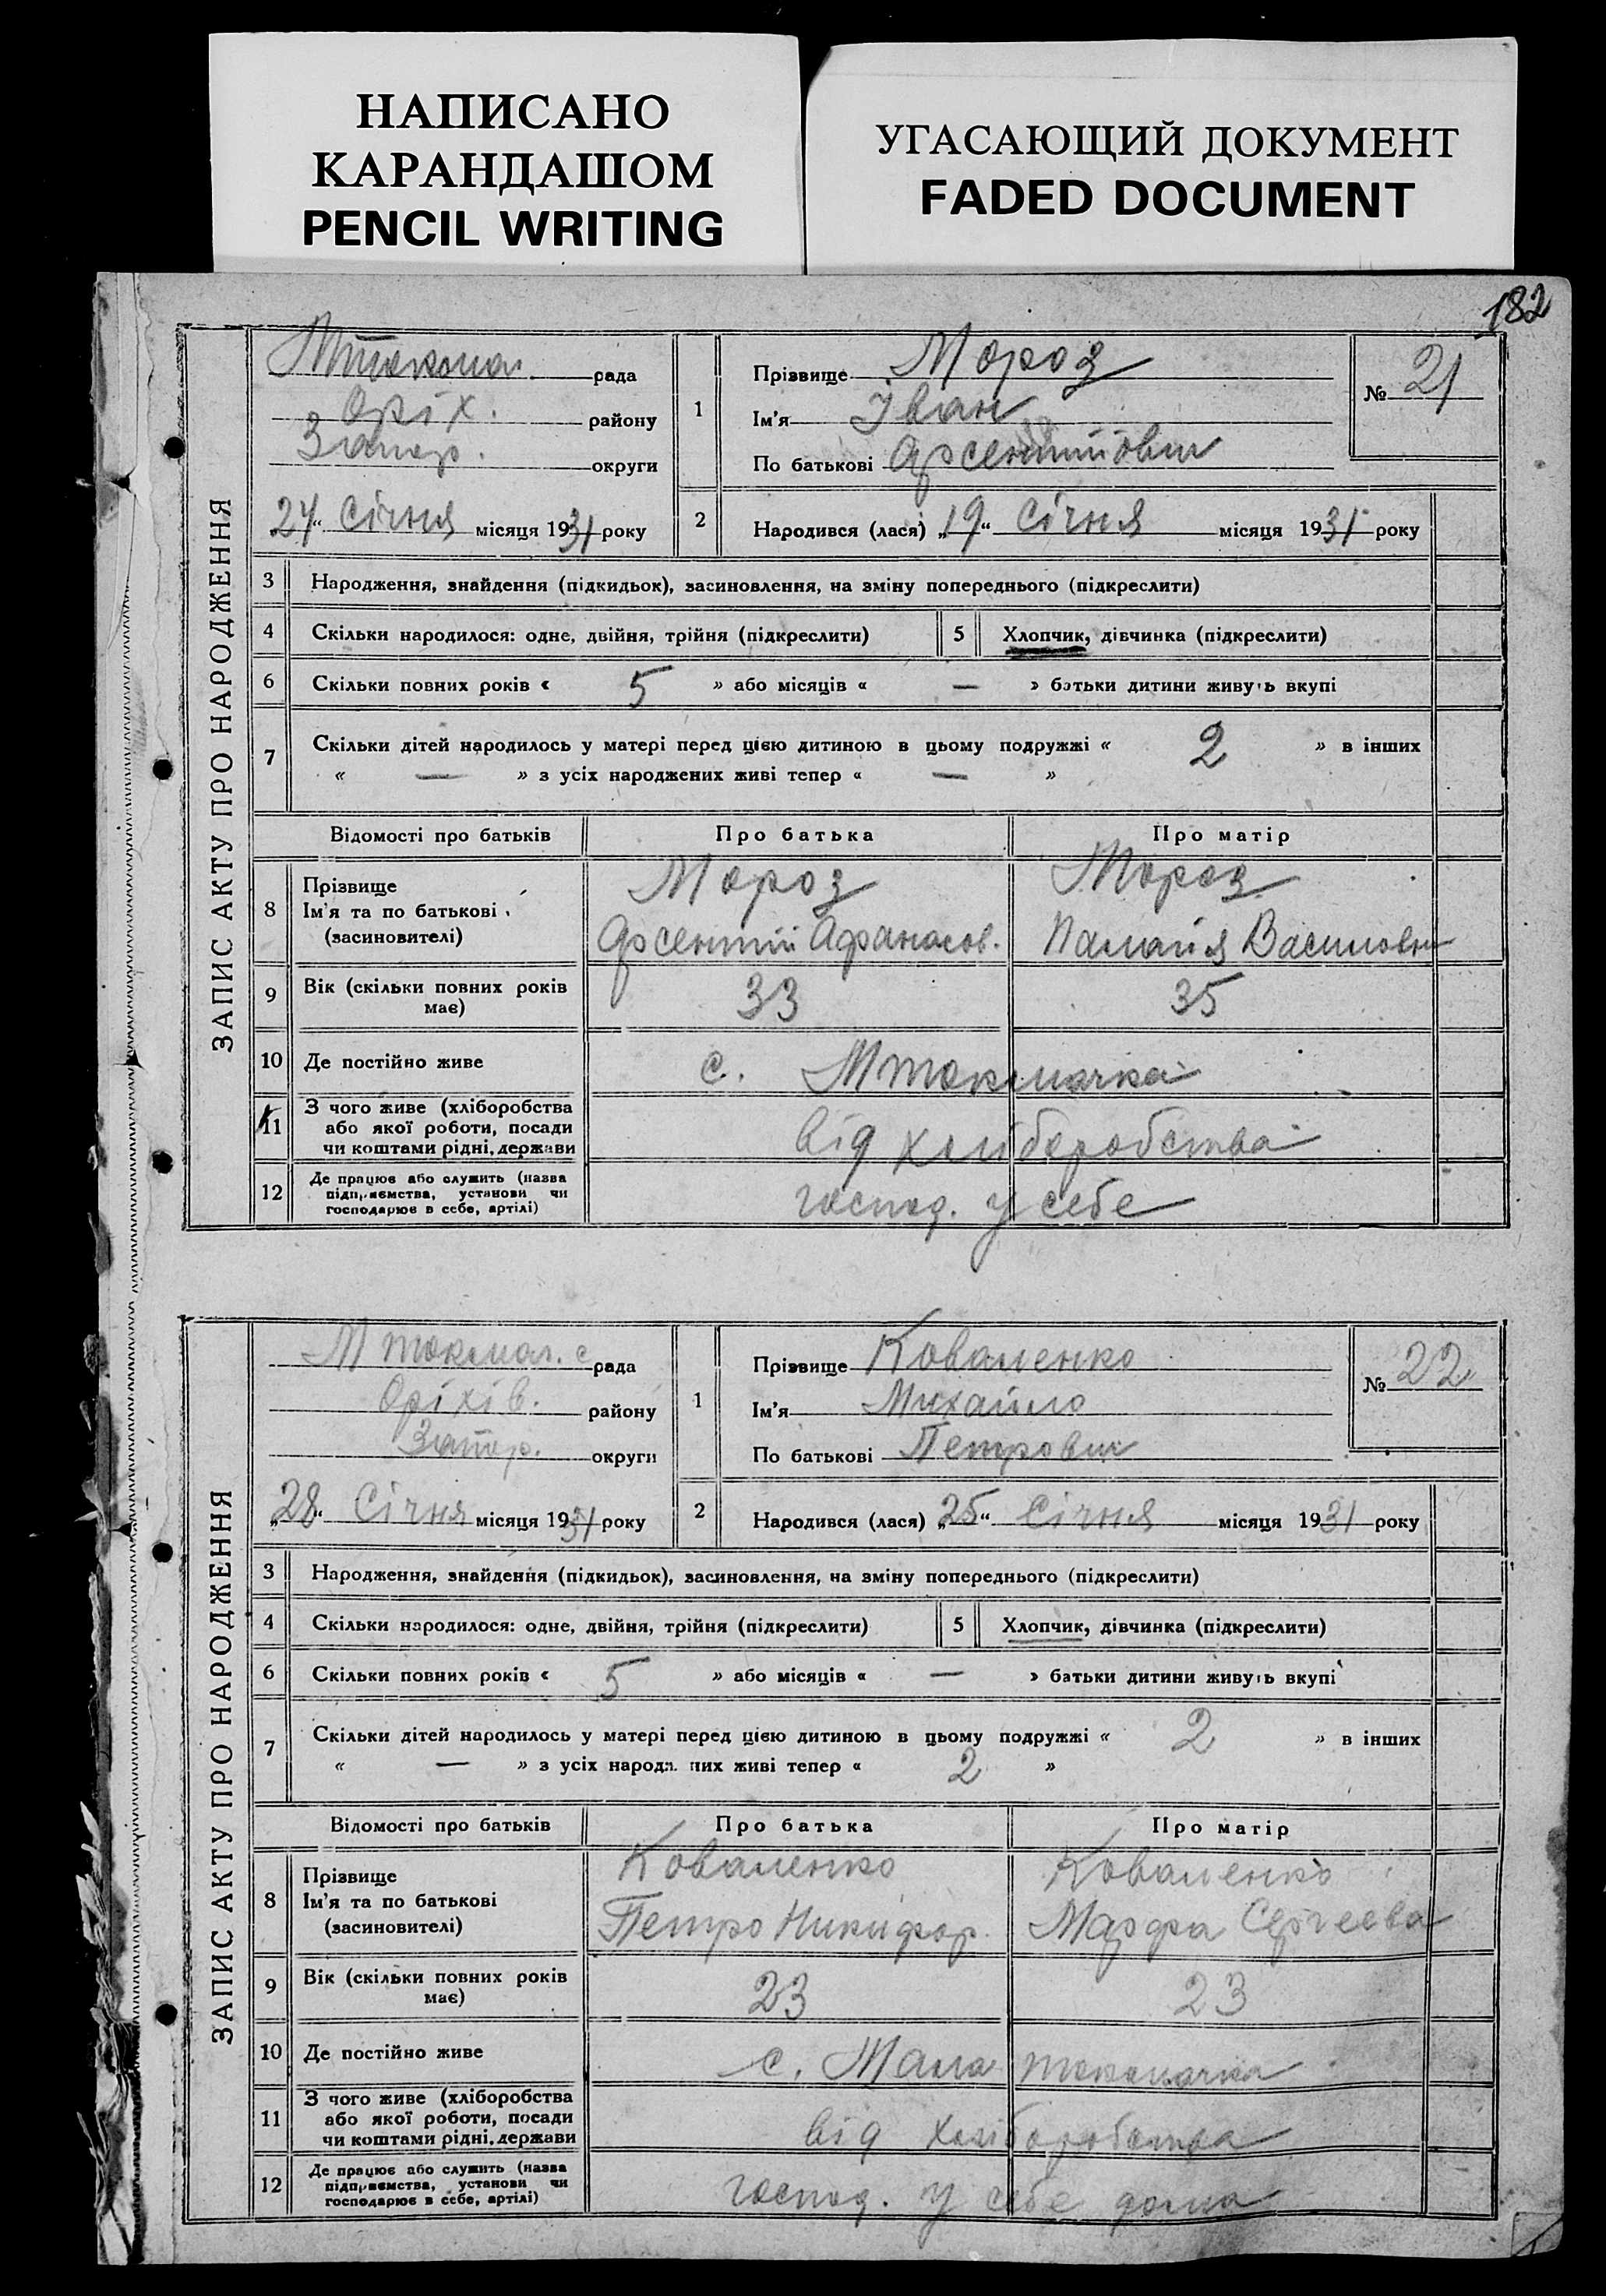 НАПИСАНО
КАРАНДАШОМ
PENCIL WRITING
УГАСАЮЩИЙ ДОКУМЕНТ
FADED DOCUMENT
182
ЗАПИС АКТУ ПРО НАРОДЖЕННЯ
Мтокмач. рада
Оріх. району
Запор. округи
24 „ січня місяця 1931 року
1
Прізвище Мороз
Ім'я Іван
По батькові Арсентійович
№ 21
2
Народився (лася) „19“ січня місяця 1931 року
3 Народження, знайдення (підкидьок), засиновлення, на зміну попереднього (підкреслити)
4 Скільки народилося: одне, двійня, трійня (підкреслити) 5 Хлопчик, дівчинка (підкреслити)
6 Скільки повних років « 5 » або місяців « — » батьки дитини живуть вкупі
7 Скільки дітей народилось у матері перед цією дитиною в цьому подружжі « 2 » в інших
« — » з усіх народжених живі тепер « — »
Відомості про батьків Про батька Про матір
8 Прізвище Мороз Мороз
Ім'я та по батькові Арсентій Афанасов. Палагія Василовн
(засиновителі)
9 Вік (скільки повних років має) 33 35
10 Де постійно живе с. Мтокмачка
11 З чого живе (хліборобства
або якої роботи, посади від хліборобства
чи коштами рідні, держави
12 Де працює або служить (назва
підприємства, установи чи господ. у себе
господарює в себе, артілі)
ЗАПИС АКТУ ПРО НАРОДЖЕННЯ
Мтокмач. с рада
Оріхів. району
Запор. округи
„28“ Січня місяця 1931 року
1
Прізвище Коваленко
Ім'я Михайло
По батькові Петрович
№ 22
2
Народився (лася) „25“ Січня місяця 1931 року
3 Народження, знайдення (підкидьок), засиновлення, на зміну попереднього (підкреслити)
4 Скільки народилося: одне, двійня, трійня (підкреслити) 5 Хлопчик, дівчинка (підкреслити)
6 Скільки повних років « 5 » або місяців « — » батьки дитини живуть вкупі
7 Скільки дітей народилось у матері перед цією дитиною в цьому подружжі « 2 » в інших
« — » з усіх народж них живі тепер « 2 »
Відомості про батьків Про батька Про матір
8 Прізвище Коваленко Коваленко
Ім'я та по батькові Петро Никифор. Марфа Сергеева
(засиновителі)
9 Вік (скільки повних років має) 23 23
10 Де постійно живе с. Мала токмачка
11 З чого живе (хліборобства
або якої роботи, посади від хліборобства
чи коштами рідні, держави
12 Де працює або служить (назва
підприємства, установи чи господ. у себе дома
господарює в себе, артілі)